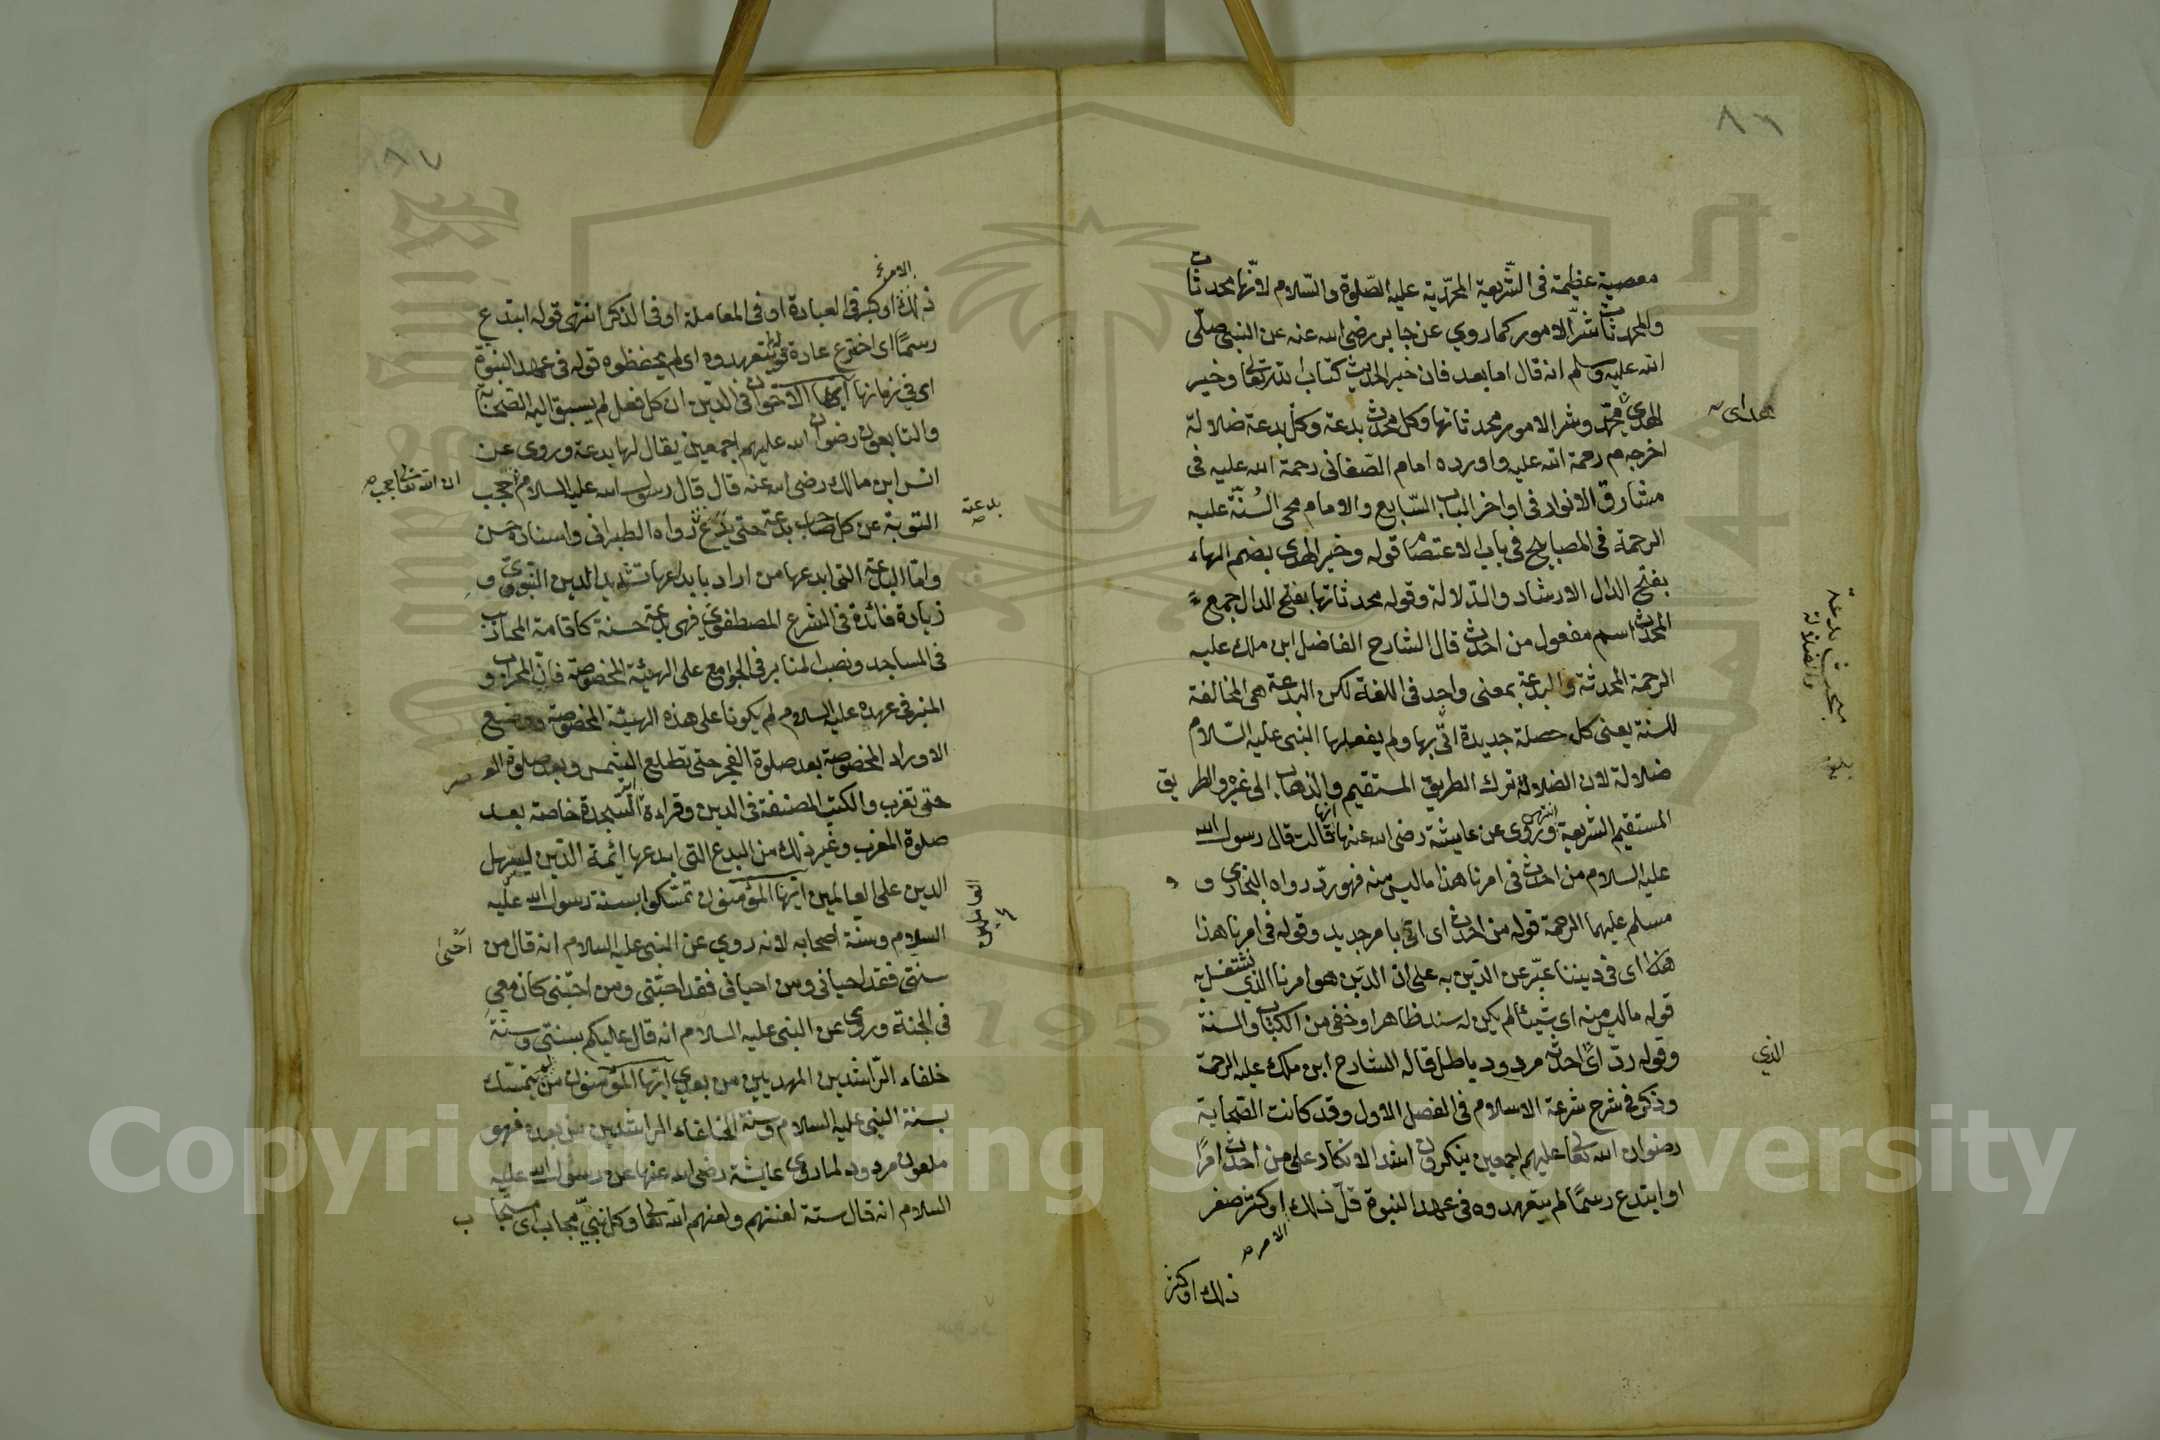 ٨٦
معصية عظيمة فى الشّريعة المحمّدية عليه الصّلوة والسّلام لانّها محدثات
والمحدثات شرّ الامور كما روي عن جابر رضى الله عنه عن النبى صلّى
الله عليه وسلم انه قال اما بعد فان خير الحديث كتاب الله تعالى وخير
الهدى محمّد وشر الامور محدثاتها وكل محدث بدعة وكل بدعة ضلالة
هدى
اخرجه م رحمة الله عليه واورده امام الصّغانى رحمة الله عليه فى
مشارق الانوار فى اواخر الباب السّابع والامام محى السُنّة عليه
الرحمة فى المصابيح فى باب الاعتصام قوله وخير الهدى بضم الهاء
بفتح الدال الارشاد والدّلالة وقوله محدثاتها بفتح الدال جمع
المحدث اسم مفعول من احدث قال الشارح الفاضل ابن ملك عليه
الرحمة المحدثة والبدعة بمعنى واحد فى اللغة لكن البدعة هى المخالفة
للسنة يعنى كل حصلة جديدة اتى بها ولم يفعلها النبى عليه السّلام
ضلالة لان الضلالة ترك الطريق المستقيم والذهاب الى غيره والطريق
المستقيم الشريعة انتهى وروى عن عايشة رضى الله عنها انها قالت قال رسول الله
عليه السلام من احدث فى امرنا هذا ما ليس منه فهو ردّ رواه البخارى و
مسلم عليهما الرحمة قوله من احدث اى اتى بامر جديد وقوله فى امرنا هذا
هذا اى فى ديننا عبّر عن الدّين به على ان الدّين هو امرنا الذي نشتغل به
قوله ما ليس منه اى شيئا لم يكن له سند ظاهر او خفى من الكتاب والسنة
وقوله ردّ اى احدثه مردود باطل قاله الشارح ابن ملك عليه الرحمة
الذي
وذكر فى شرح شرعة الاسلام فى الفصل الاول وقد كانت الصّحابة
رضوان الله تعالى عليهم اجمعين ينكرون اشد الانكار على من احدث امرًا
او ابتدع رسمًا لم يتعهدوه فى عهد النبوة قلّ ذلك او كثر صغر
الامر
ذلك او كثر
٨٧
الامر
ذلك او كبر فى العبادة او فى المعاملة او فى الذكر انتهى قوله ابتدع
رسمًا اى اخترع عادة قوله لم يتعهدوه اى لم يحفظوه قوله فى عهد النبوة
اى فى زمانها ايّها الاخوان فى الدّين ان كل فعل لم يسبق اليه الصّحابة
والتابعون رضوان الله عليهم اجمعين يقال لها بدعة وروى عن
انس ابن مالك رضى الله عنه قال قال رسول الله عليه السلام حجب
ان الله تعالى حجب
التوبة عن كل صاحب بدعة حتى يدع رواه الطبرانى واسناده حسن
بدعته
وامّا البدعة التى ابدعها من اراد بابداعها تشديد الدين النبوىّ و
زيادة فائدة فى الشرع المصطفوى فهى بدعة حسنة كاقامة المحارب
فى المساجد ونصب المنابر فى الجوامع على الهيئة المخصوصة فانّ المحراب و
المنبر فى عهده عليه السلام لم يكونا على هذه الهيئة المخصوصة ووضع
الاوراد المخصوصة بعد صلوة الفجر حتى تطلع الشمس وبعد صلوة العصر
حتى تغرب والكتب المصنفة فى الدين وقراءة السّجدة خاصة بعد
صلوة المغرب وغير ذلك من البدع التى ابدعها ائمة الدّين ليسهل
الدين على العالمين ايّها المؤمنون تمسّكوا بسنة رسول الله عليه
العاملين
السلام وسنة اصحابه لانه روي عن النبى عليه السلام انه قال من احيى
سنتى فقد احيانى ومن احيانى فقد احبّنى ومن احبّنى كان معى
فى الجنة وروى عن النبى عليه السلام انه قال عليكم بسنتى وسنة
خلفاء الرّاشدين المهديين من بعدى ايّها المؤمنون من لم يتمسك
بسنة النبى عليه السلام وسنة الخلفاء الراشدين من بعده فهو
ملعون مردود لما روى عايشة رضى الله عنها عن رسول الله عليه
السلام انه قال ستة لعنتهم ولعنهم الله تعالى وكل نبىّ مجاب اى مستجاب
Copyright © King Saud University
1957